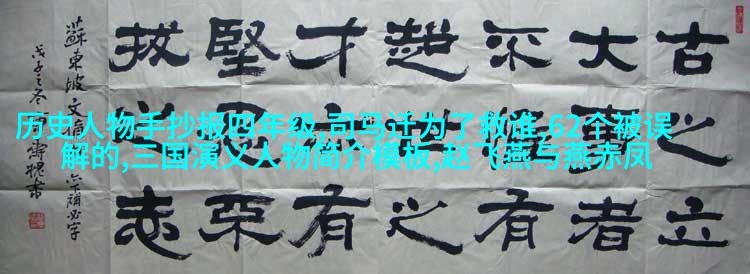 历史人物手抄报四年级,司马迁为了救谁,62个被误
解的,三国演义人物简介模板,赵飞燕与燕赤凤
古之立
大事者
不有
超之
才有
堅忍不
拔之志
蘇東坡文
戊子之冬